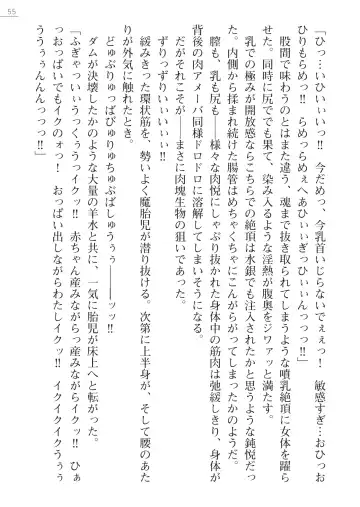 55
「ひっ…いひぃぃぃ‼ 今だめっ、今乳首いじらないでぇぇっ！ 敏感すぎ…おひっお
ひりもらめっ‼ らめっらめぇへあひぃぃぎっひぃぃんんんっっ‼」
股間で味わうのとはまた違う、魂まで抜き取られてしまうような噴乳絶頂に女体を躍ら
せた。同時に尻ででも果て、染み入るような淫熱が腹奥をジワァッと満たす。
乳での軽く開放感ならこちらでの絶頂は水銀でも注入されたかと思うような鈍悦だっ
た。内側から揉まれ続けた腸管はめちゃくちゃにこんがらがってしまったかのようだ。
膣も、乳も尻も――様々な肉悦にしゃぶり抜かれた身体中の筋肉は弛緩しきり、身体が
背後の肉アメーバ同様ドロドロに溶解してしまいそうになる。
だがそれこそが――まさに肉塊生物の狙いであった。
ずりっずりぃいぃぃぃ‼
緩みきった環状筋を、勢いよく魔胎児が潜り抜ける。次第に上半身が、そして腰のあた
りが外気に触れたとき。
どゅぷりゅっぱびゅりゅちゅぷばしゅうぅぅ――ッッ‼
ダムが決壊したかのような大量の羊水と共に、一気に胎児が床上へと転がった。
「ふぎゃっいぃうっくぅうっイクッ‼ 赤ちゃん産みながらっ産みながらイクッ‼ ひぁ
っおっぱいでもイクのォっ！ おっぱい出しながらわたしイクッ‼ イクイクイクうぅぅ
ううぅぅんんんっっっ‼」